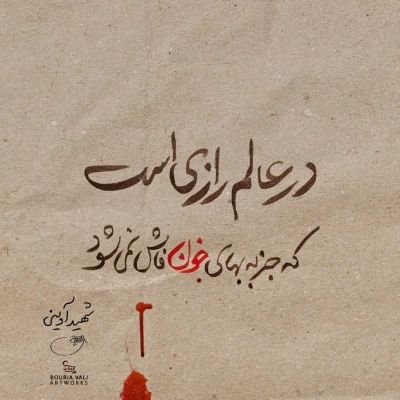 در عالم رازی است
که جز به بهای خون فاش نمی شود
شهید آوینی
POURIA VALI
ARTWORKS